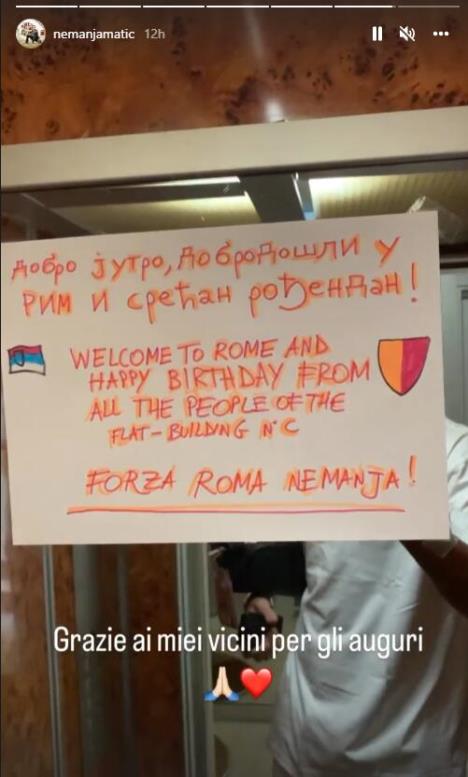 nemanjamatic 12h
Добро јутро, добродошли у
Рим и срећан рођендан!
WELCOME TO ROME AND
HAPPY BIRTHDAY FROM
ALL THE PEOPLE OF THE
FLAT-BUILDING N°C
FORZA ROMA NEMANJA!
Grazie ai miei vicini per gli auguri
🙏🏻❤️